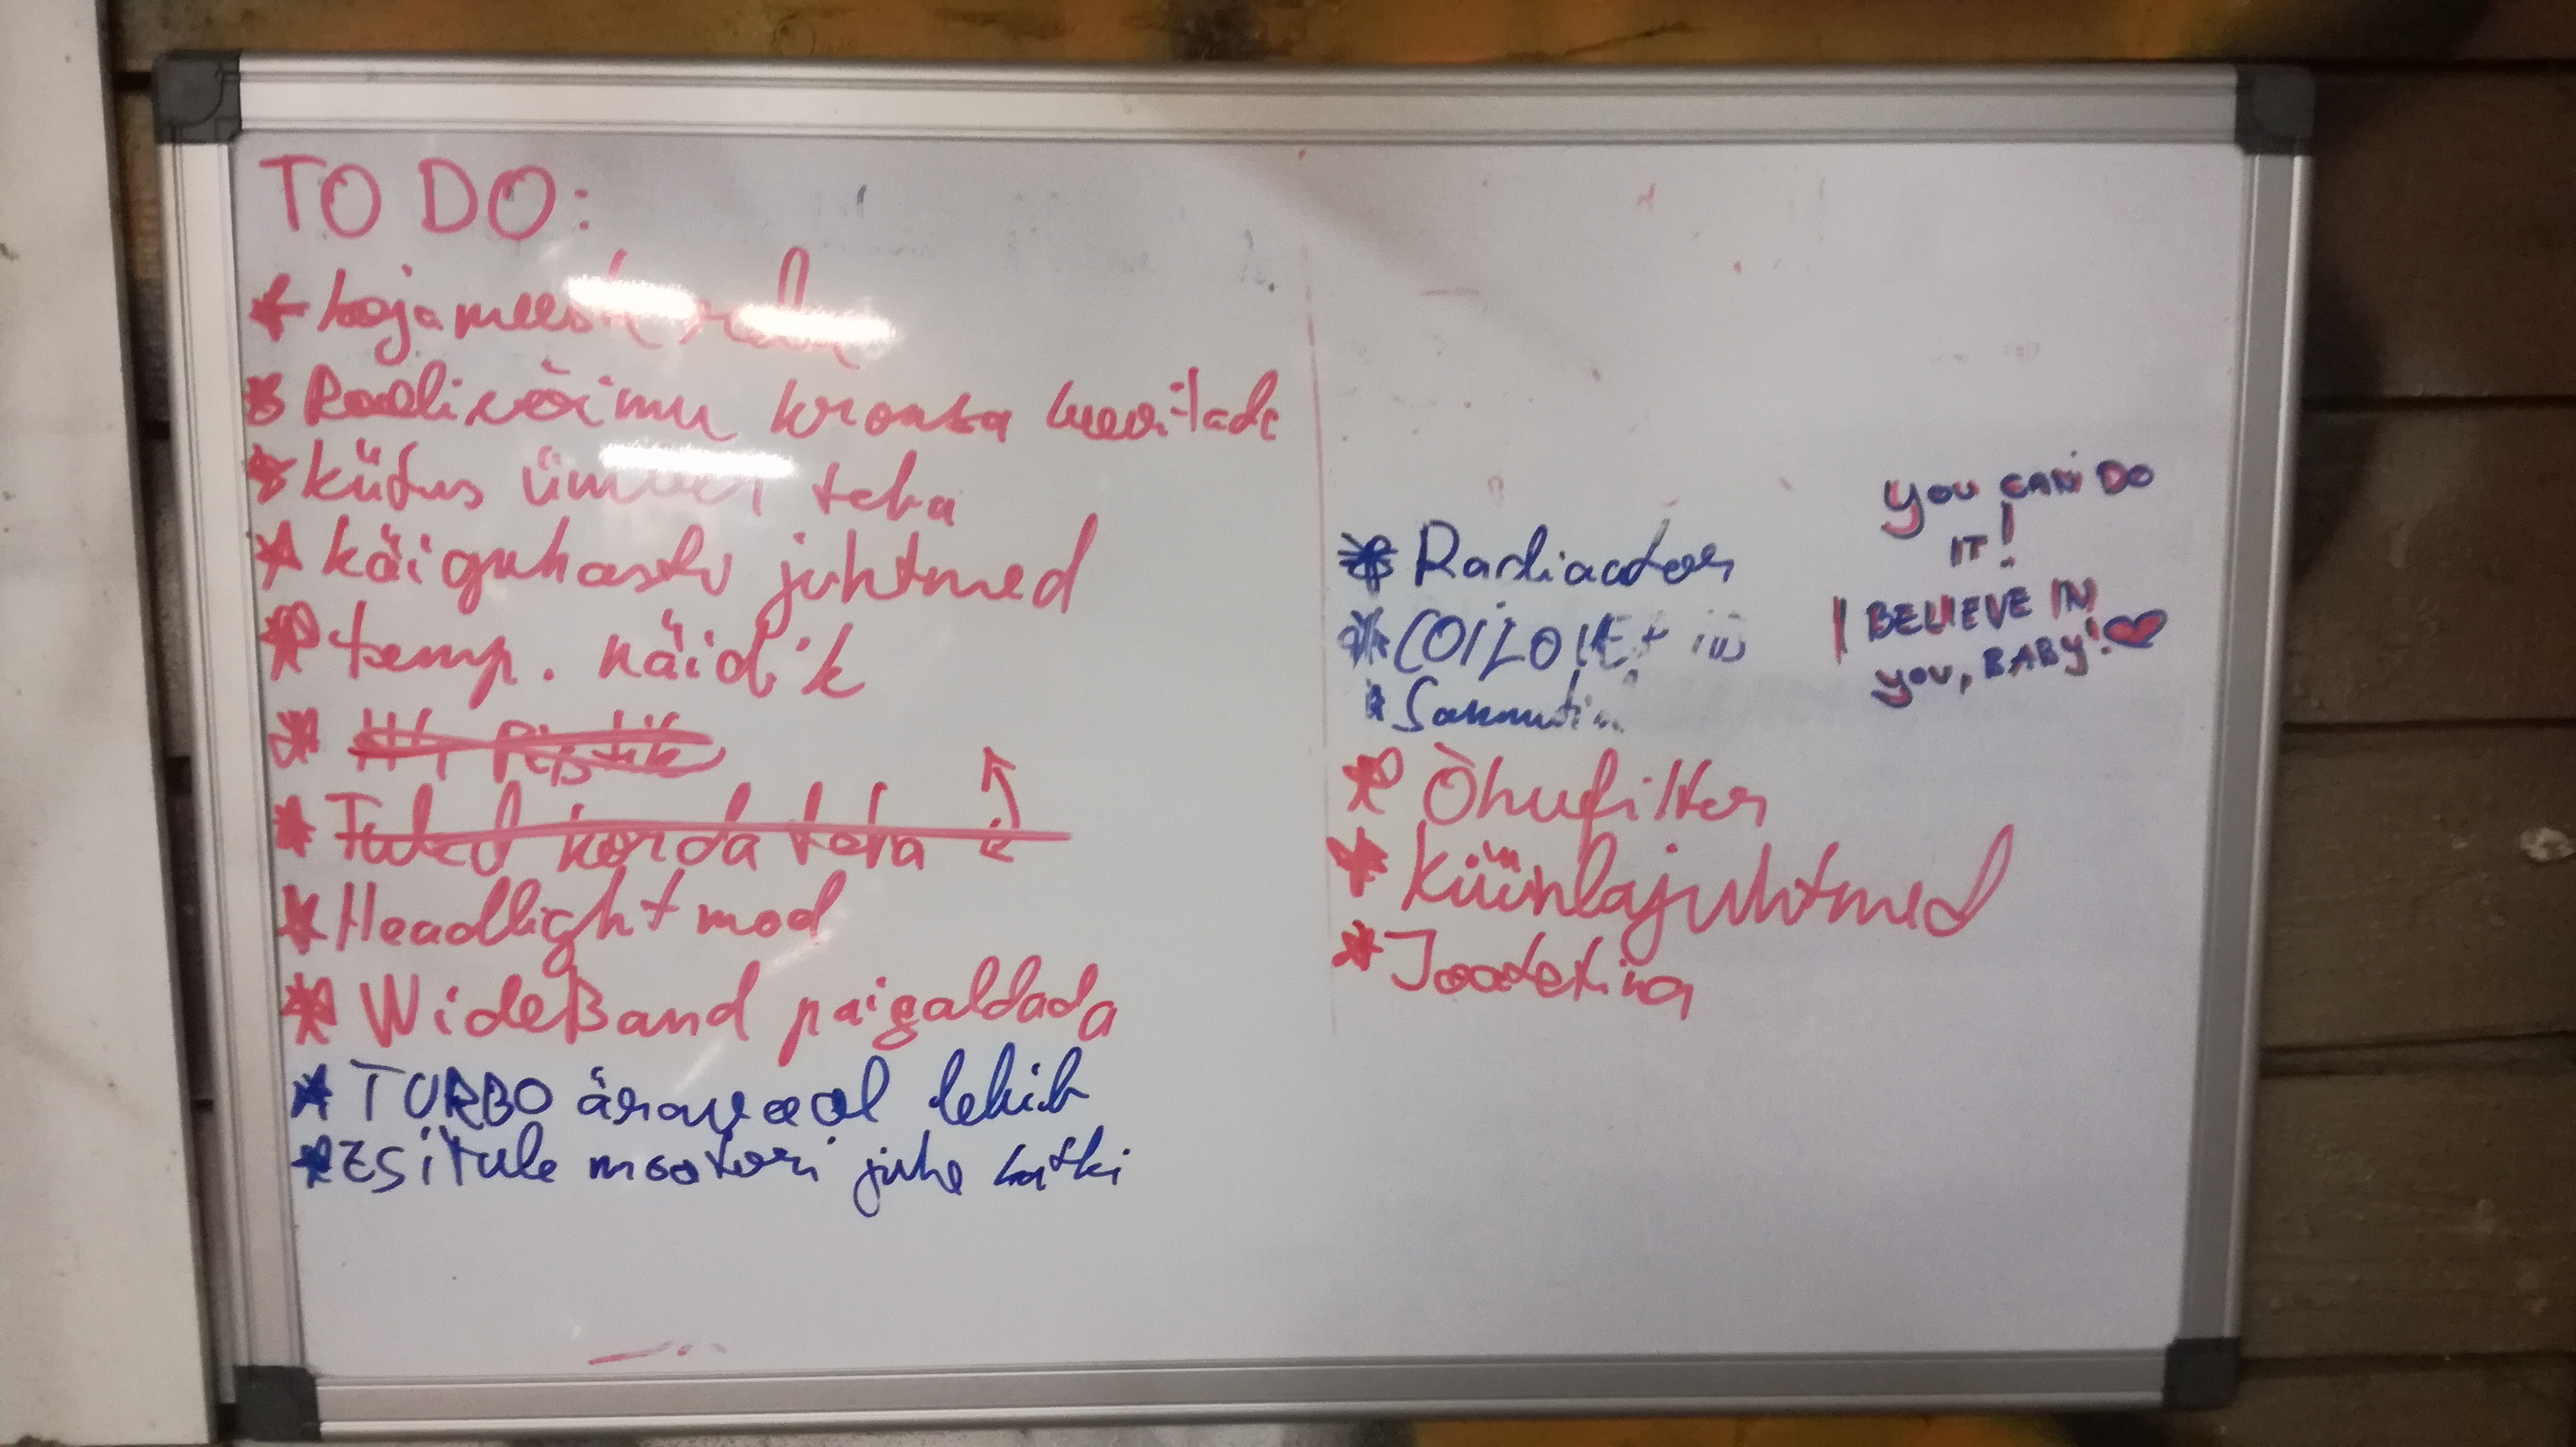 TO DO:
* kojameeste
* Roolivõimu kronsa keevitada
* küttus ümber teha
* käigukasti juhtmed
* temp. näidik
* pistik
* Tuled korda teha
* Headlight mod
* WideBand paigaldada
* TURBO äravool lekib
* ESitule mootori juhe katki
* Radiaator
* Õhufilter
* Küünlajuhtmed
* Jootetina
YOU CAN DO
IT!
I BELIEVE IN
YOU, BABY!